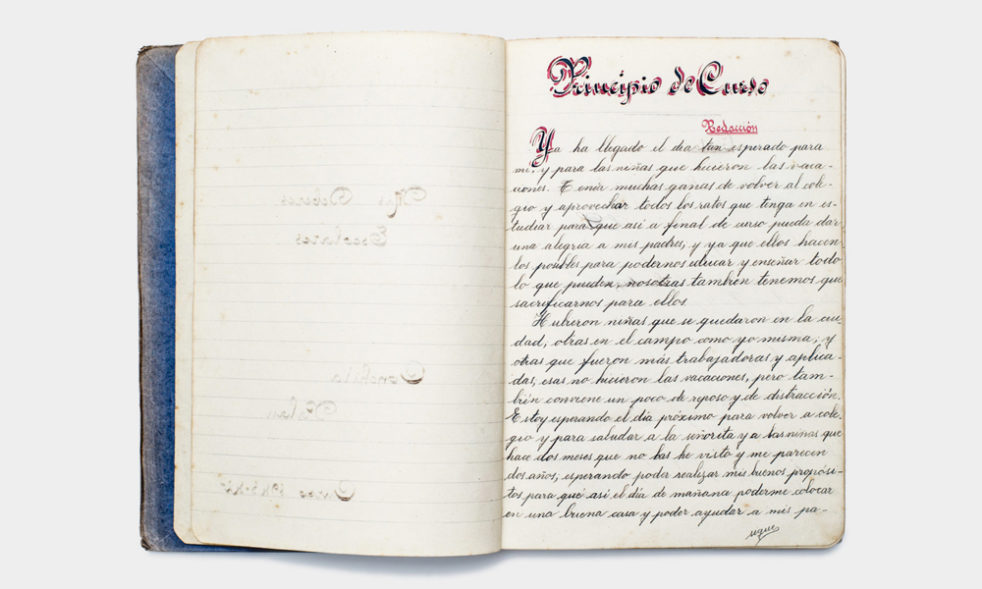 Mis Deberes
Escolares
Conchita
Curso
Principio de Curso
Redacción
Ya ha llegado el día tan esperado para
mi y para las niñas que hicieron las vaca-
ciones. Tenía muchas ganas de volver al cole-
gio y aprovechar todos los ratos que tenga en es-
tudiar para que así a final de curso pueda dar
una alegria a mis padres, y ya que ellos hacen
los posibles para podernos educar y enseñar todo
lo que pueden, nosotras también tenemos que
sacrificarnos para ellos
Hubieron niñas que se quedaron en la ciu-
dad, otras en el campo como yo misma, y
otras que fueron más trabajadoras y aplica-
das, esas no hicieron las vacaciones, pero tam-
bién conviene un poco de reposo y de distracción.
Estoy esperando el día próximo para volver a cole-
gio y para saludar a la señorita y a las niñas que
hace dos meses que no las he visto y me parecen
dos años, esperando poder realizar mis buenos propósi-
tos para que así el día de mañana poderme colocar
en una buena casa y poder ayudar a mis pa-
sigue